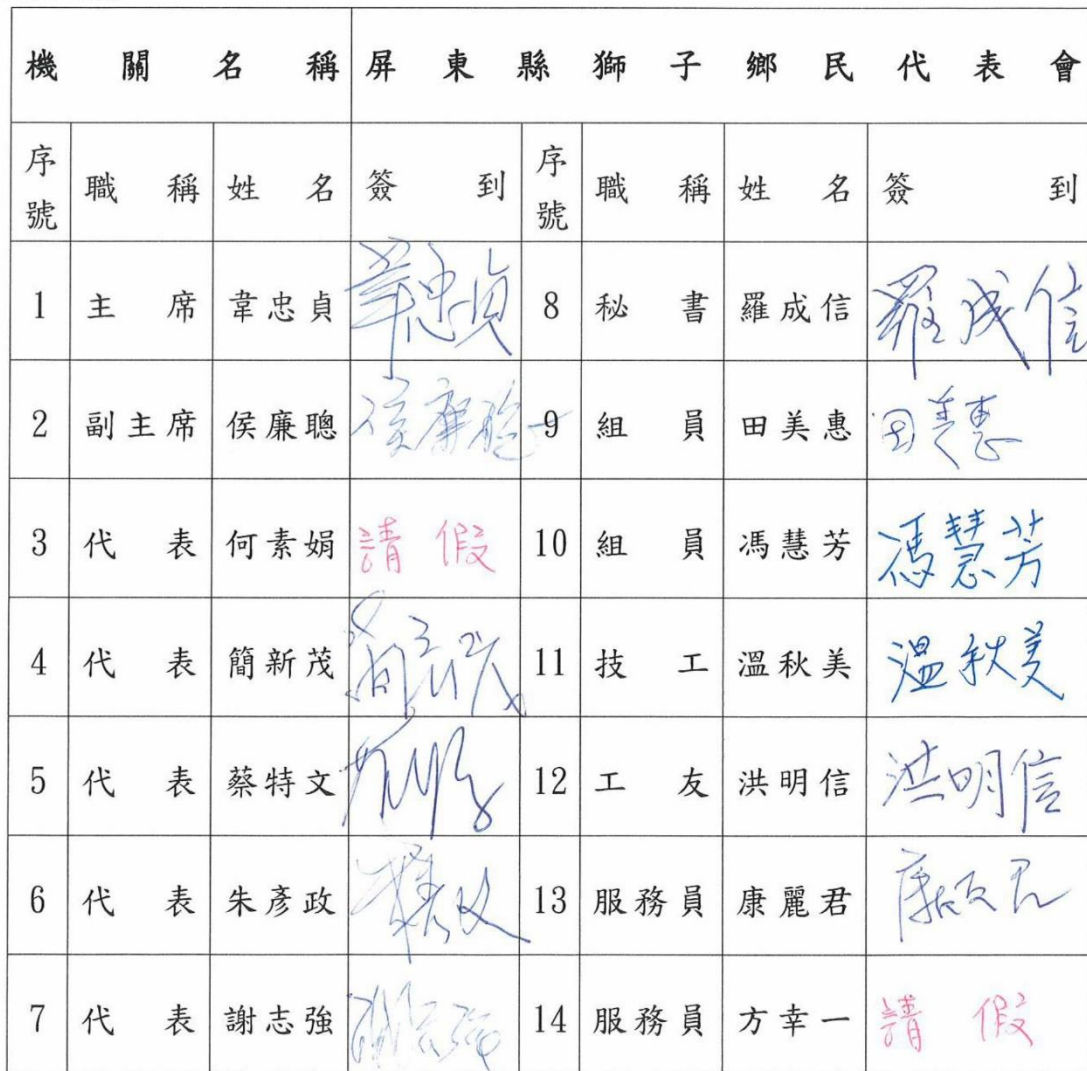 機關名稱 屏東縣獅子鄉民代表會
序號 職稱 姓名 簽到 序號 職稱 姓名 簽到
1 主席 韋忠貞 韋忠貞 8 秘書 羅成信 羅成信
2 副主席 侯廉聰 侯廉聰 9 組員 田美惠 田美惠
3 代表 何素娟 請假 10 組員 馮慧芳 馮慧芳
4 代表 簡新茂 11 技工 溫秋美 溫秋美
5 代表 蔡特文 12 工友 洪明信 洪明信
6 代表 朱彥政 13 服務員 康麗君
7 代表 謝志強 14 服務員 方幸一 請假